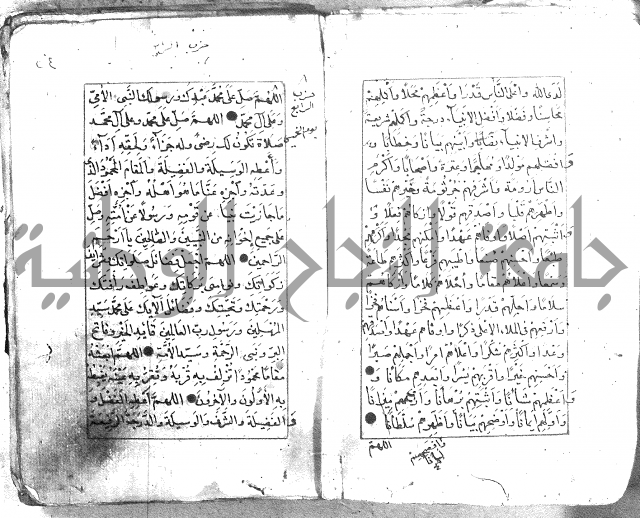 لله واعلا الناس قدرا واعظمهم محلا واكملهم
محاسنا وفضلا وافضل الانبياء درجة واكملهم شريعة
واشرف الانبياء نصابا وابينهم بيانا وخطابا
وافضلهم مولدا ومهاجرا وعترة واصحابا واكرم
الناس ارومة واشرفهم جرثومة وخيرهم نفسا
واطهرهم قلبا واصدقهم قولا وازكاهم فعلا و
اثبتهم اصلا واوفاهم عهدا وامكنهم مجدا واكرمهم
طبعا واحسنهم صنعا واطيبهم فرعا واكثرهم طاعة
وسمعا واعلاهم مقاما واحلاهم كلاما وازكاهم
سلاما واجلهم قدرا واعظمهم فخرا واسناهم فخرا
وارفعهم في الملاء الاعلى ذكرا واوفاهم عهدا واصدقهم
وعدا واكثرهم شكرا واعلاهم امرا واجملهم صبرا
واحسنهم خيرا واقربهم يسرا وابعدهم مكانا و
اعظمهم شانا واثبتهم برهانا وارجحهم ميزانا
واولهم ايمانا واوضحهم بيانا واظهرهم سلطانا
اللهم
حزب
الرابع
يوم الخميس
اللهم صل على محمد عبدك ورسولك النبي الامي
وعلى آل محمد اللهم صل على محمد وعلى آل محمد
صلاة تكون لك رضى وله جزاء ولحقه اداء
واعطه الوسيلة والفضيلة والمقام المحمود الذي
وعدته واجزه عنا ما هو اهله واجزه افضل
ما جازيت نبيا عن قومه ورسولا عن امته وصل
على جميع اخوانه من النبيين والصالحين يا ارحم
الراحمين اللهم اجعل فضائل صلواتك وشرائف
زكواتك ونوامي بركاتك وعواطف رافتك
ورحمتك وتحيتك وفضائل الآئك على محمد سيد
المرسلين ورسول رب العالمين قائد الخير وفاتح
البر ونبي الرحمة وسيد الامة اللهم ابعثه
مقاما محمودا تزلف به قربه وتقر به عينه يغبطه
به الاولون والآخرون اللهم اعطه الفضل و
الفضيلة والشرف والوسيلة والدرجة الرفيعة
جامعة النجاح الوطنية